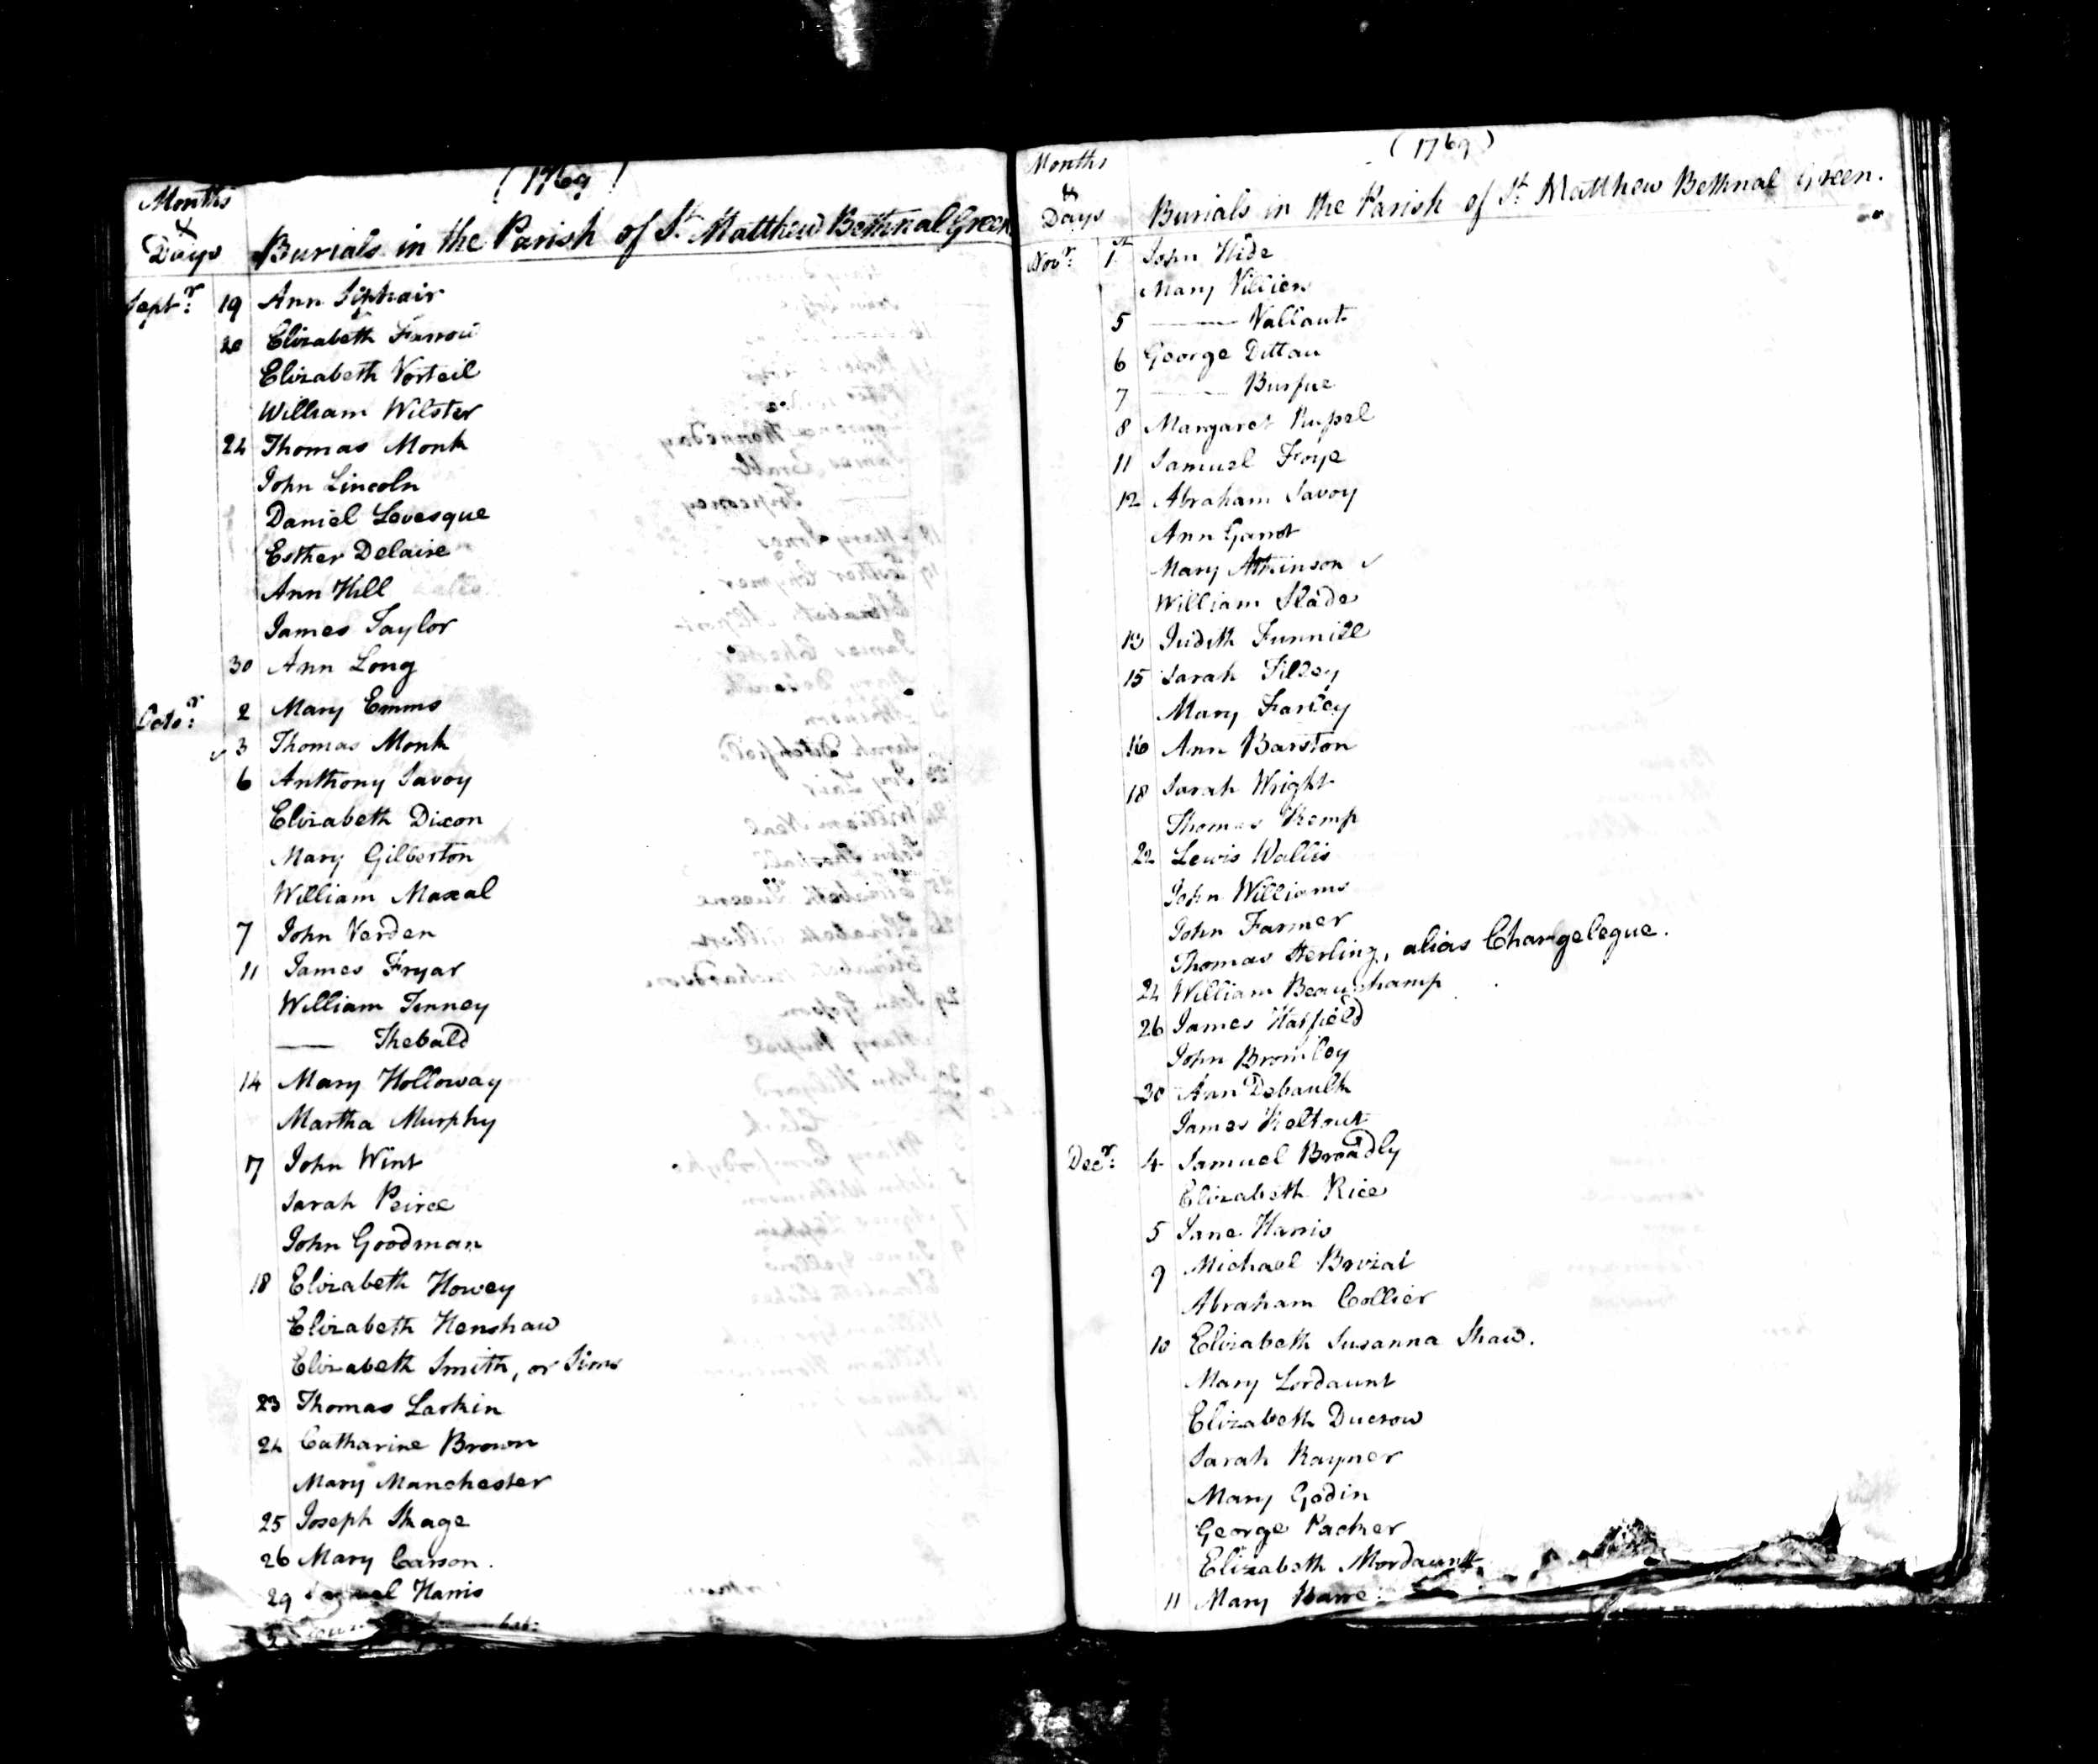 (1769)
Months
&
Days
Burials in the Parish of St. Matthew Bethnal Green
Septr: 19 Ann Siphair
20 Elizabeth Farrow
Elizabeth Vorteil
William Wilster
24 Thomas Monk
John Lincoln
Daniel Levesque
Esther Delaire
Ann Hill
James Taylor
30 Ann Long
Octor: 2 Mary Emms
3 Thomas Monk
6 Anthony Savoy
Elizabeth Dixon
Mary Gilberton
William Maxal
7 John Verden
11 James Fryar
William Tenney
—— Thebald
14 Mary Holloway
Martha Murphy
17 John Wint
Sarah Peirce
John Goodman
18 Elizabeth Howey
Elizabeth Henshaw
Elizabeth Smith, or Sims
23 Thomas Larkin
24 Catharine Brown
Mary Manchester
25 Joseph Skage
26 Mary Carson.
29 Samuel Harris
(1769)
Months
&
Days
Burials in the Parish of St. Matthew Bethnal Green.
Novr: 1st John Hide
Mary Villiers
5 —— Vallant
6 George Dittau
7 —— Burfue
8 Margaret Russel
11 Samuel Froye
12 Abraham Savoy
Ann Garrot
Mary Atkinson
William Slade
13 Judith Funnill
15 Sarah Silley
Mary Farley
16 Ann Barston
18 Sarah Wright
Thomas Kemp
22 Lewis Wallis
John Williams
John Farmer
Thomas Sterling, alias Changelegue.
24 William Beauchamp
26 James Hatfield
John Bromley
30 Ann Debaulk
James Keltrut
Decr: 4 Samuel Broadly
Elizabeth Rice
5 Jane Harris
9 Michael Brvzat
Abraham Collier
10 Elizabeth Susanna Shaw.
Mary Lordaunt
Elizabeth Ducrow
Sarah Rayner
Mary Godin
George Packer
Elizabeth Mordauntt
11 Mary Barre: